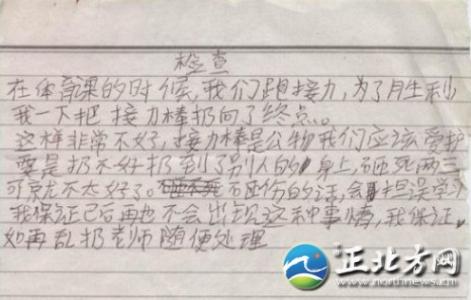 检查
在体育课的时候,我们跑接力,为了胜利
我一下把接力棒扔向了终点。
这样非常不好,接力棒是公物我们应该爱护
要是扔不好扔到了别人的身上,砸死两三
可就不太好了。砸伤的话,会耽误学习
我保证已后再也不会出现这种事情,我保证
如再乱扔老师随便处理
正北方网
www.northnews.cn